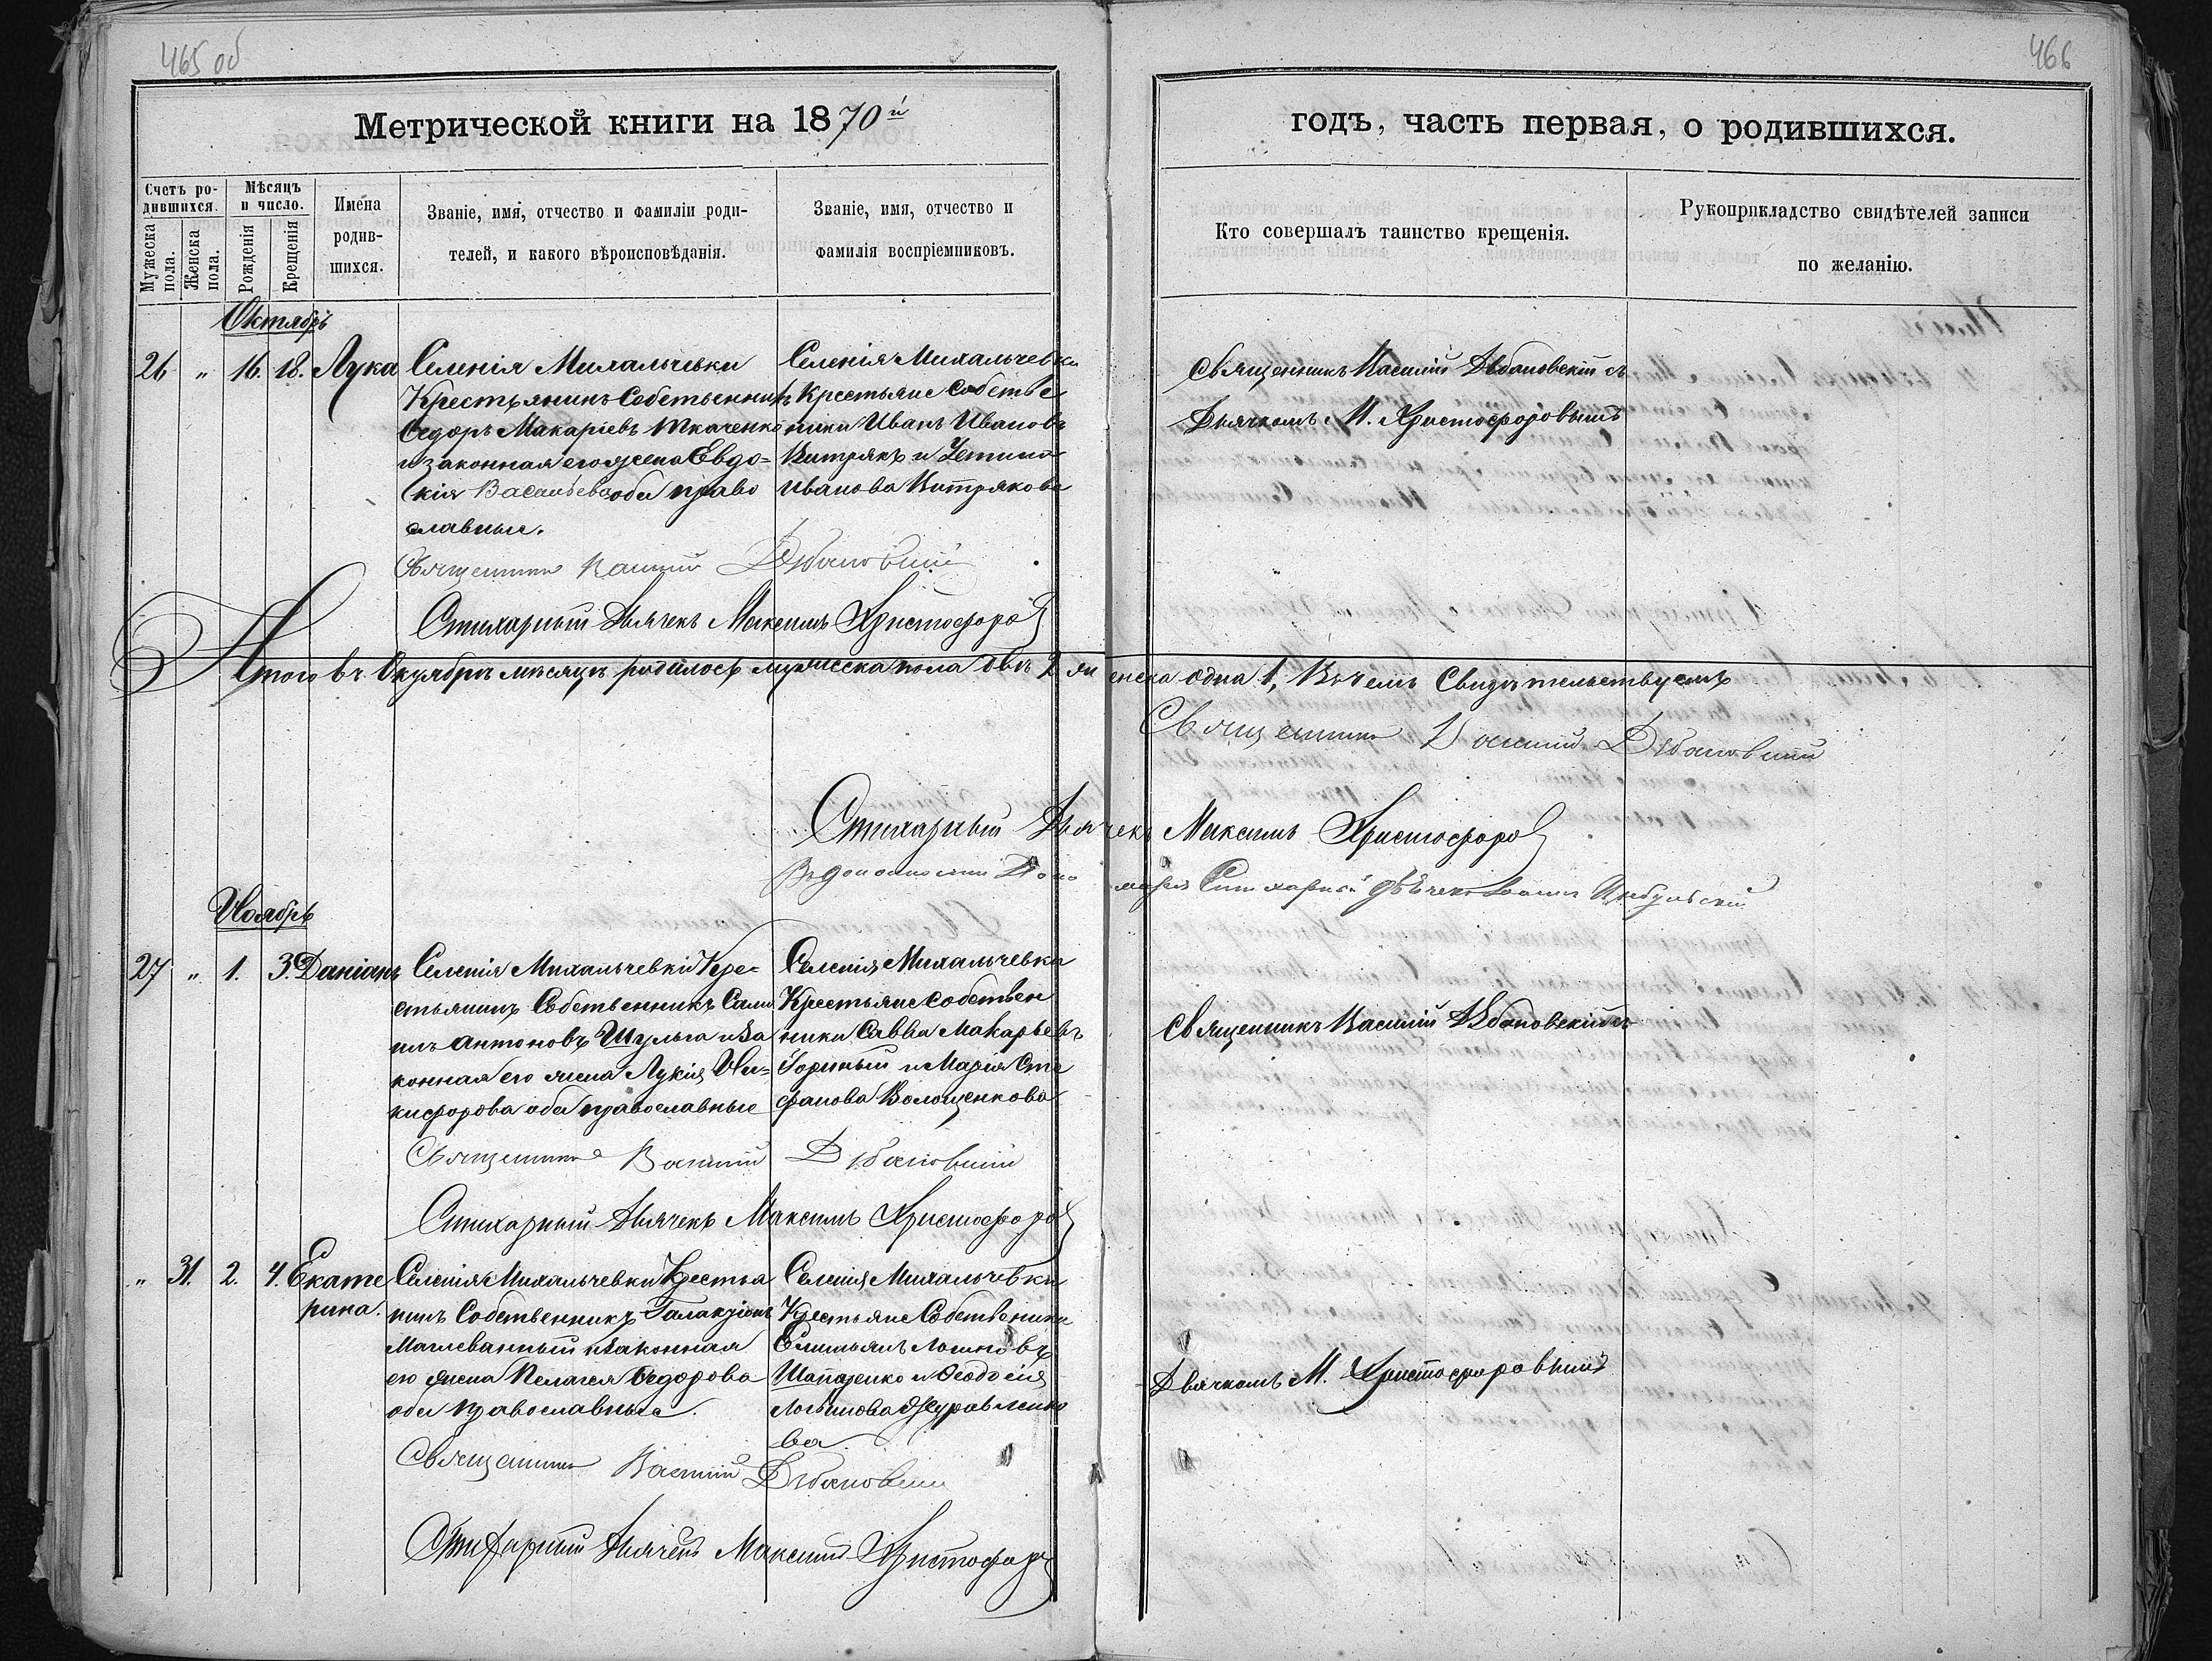 465 об
466
Метрической книги на 1870й
годъ, часть первая, о родившихся.
Счетъ ро-
дившихся.
Мужеска
пола.
Женска
пола.
Мѣсяцъ
и число.
Рожденія
Крещенія
Имена
родив-
шихся.
Званіе, имя, отчество и фамиліи роди-
телей, и какого вѣроисповѣданія.
Званіе, имя, отчество и
фамилія воспріемниковъ.
Кто совершалъ таинство крещенія.
Рукоприкладство свидѣтелей записи
по желанію.
Октябрь
26 " 16. 18. Лука
Селенія Михальчевки
Крестьянинъ Собственникъ
Ѳедоръ Макаріевъ Ткаченко
и законная его жена Евдо=
кія Васильева оба право
славные.
Селенія Михальчевки
Крестьяне Собстве
ники Иванъ Ивановъ
Витрякъ и
Иванова Витрякова
Священникъ Василій Дѣбановскій съ
Дьячкомъ М. Христофоровымъ
Священникъ Василій Дѣбановскій
Стихарный Дьячекъ Максимъ Христофоровъ
Итого въ Октябрѣ мѣсяцѣ родилось мужеска пола два 2 женска одна 1, Въ чемъ Свидѣтельствуемъ
Священникъ Василій Дѣбановскій
Стихарный Дьячекъ Максимъ Христофоровъ
Въ должности Пономаря Стихарный дьячекъ Цыбульскій
Ноябрь
27 " 1. 3. Даніилъ
Селенія Михальчевки Кре=
стьянинъ Собственникъ Сам
илъ Антоновъ Шульга и за
конная его жена Лукія Ни=
кифорова оба православные
Селенія Михальчевки
Крестьяне собствен
ники Савва Макарьевъ
Горный и Марія Сте
фанова Волощенкова
Священникъ Василій Дѣбановскій съ
Священникъ Василій Дѣбановскій
Стихарный Дьячекъ Максимъ Христофоровъ
" 31. 2. 4. Екате
рина.
Селенія Михальчевки Крестья
нинъ Собственникъ Галактіонъ
Маглеванный и законная
его жена Пелагея Ѳедорова
оба православные.
Селенія Михальчевки
Крестьяне Собственники
Емильянъ Логиновъ
Шапаренко и Ѳеодосія
Логвинова Журавленко
ва
Дьячкомъ М. Христофоровымъ
Священникъ Василій Дѣбановскій
Стихарный Дьячекъ Максимъ Христофоровъ